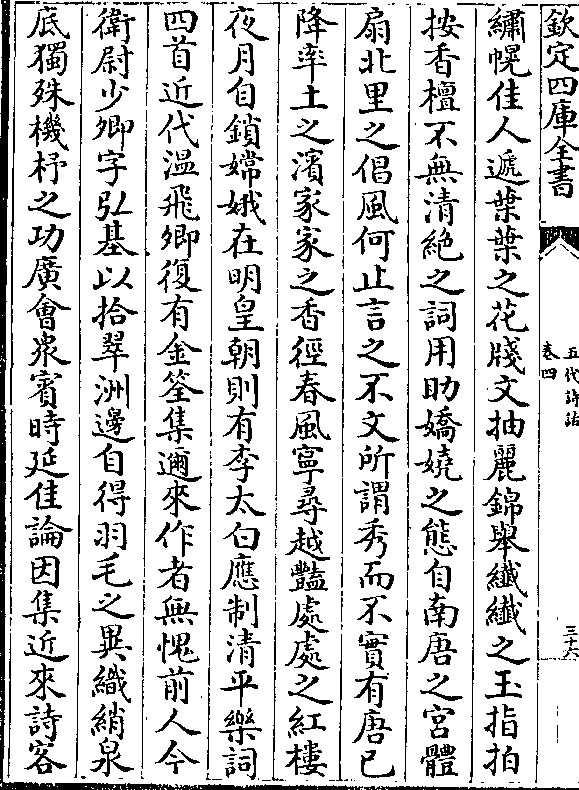 欽定四庫全書
五代詩話
卷四
三十六
繡幌佳人遞葉葉之花牋文抽麗錦舉纖纖之玉指拍
按香檀不無清絶之詞用助嬌嬈之態自南唐之宮體
扇北里之倡風何止言之不文所謂秀而不實有唐已
降率土之濱家家之香徑春風寧尋越豔處處之紅樓
夜月自鎖嫦娥在明皇朝則有李太白應制清平樂詞
四首近代溫飛卿復有金筌集邇來作者無愧前人今
衛尉少卿字弘基以拾翠洲邊自得羽毛之異織綃泉
底獨殊機杼之功廣會衆賓時延佳論因集近來詩客